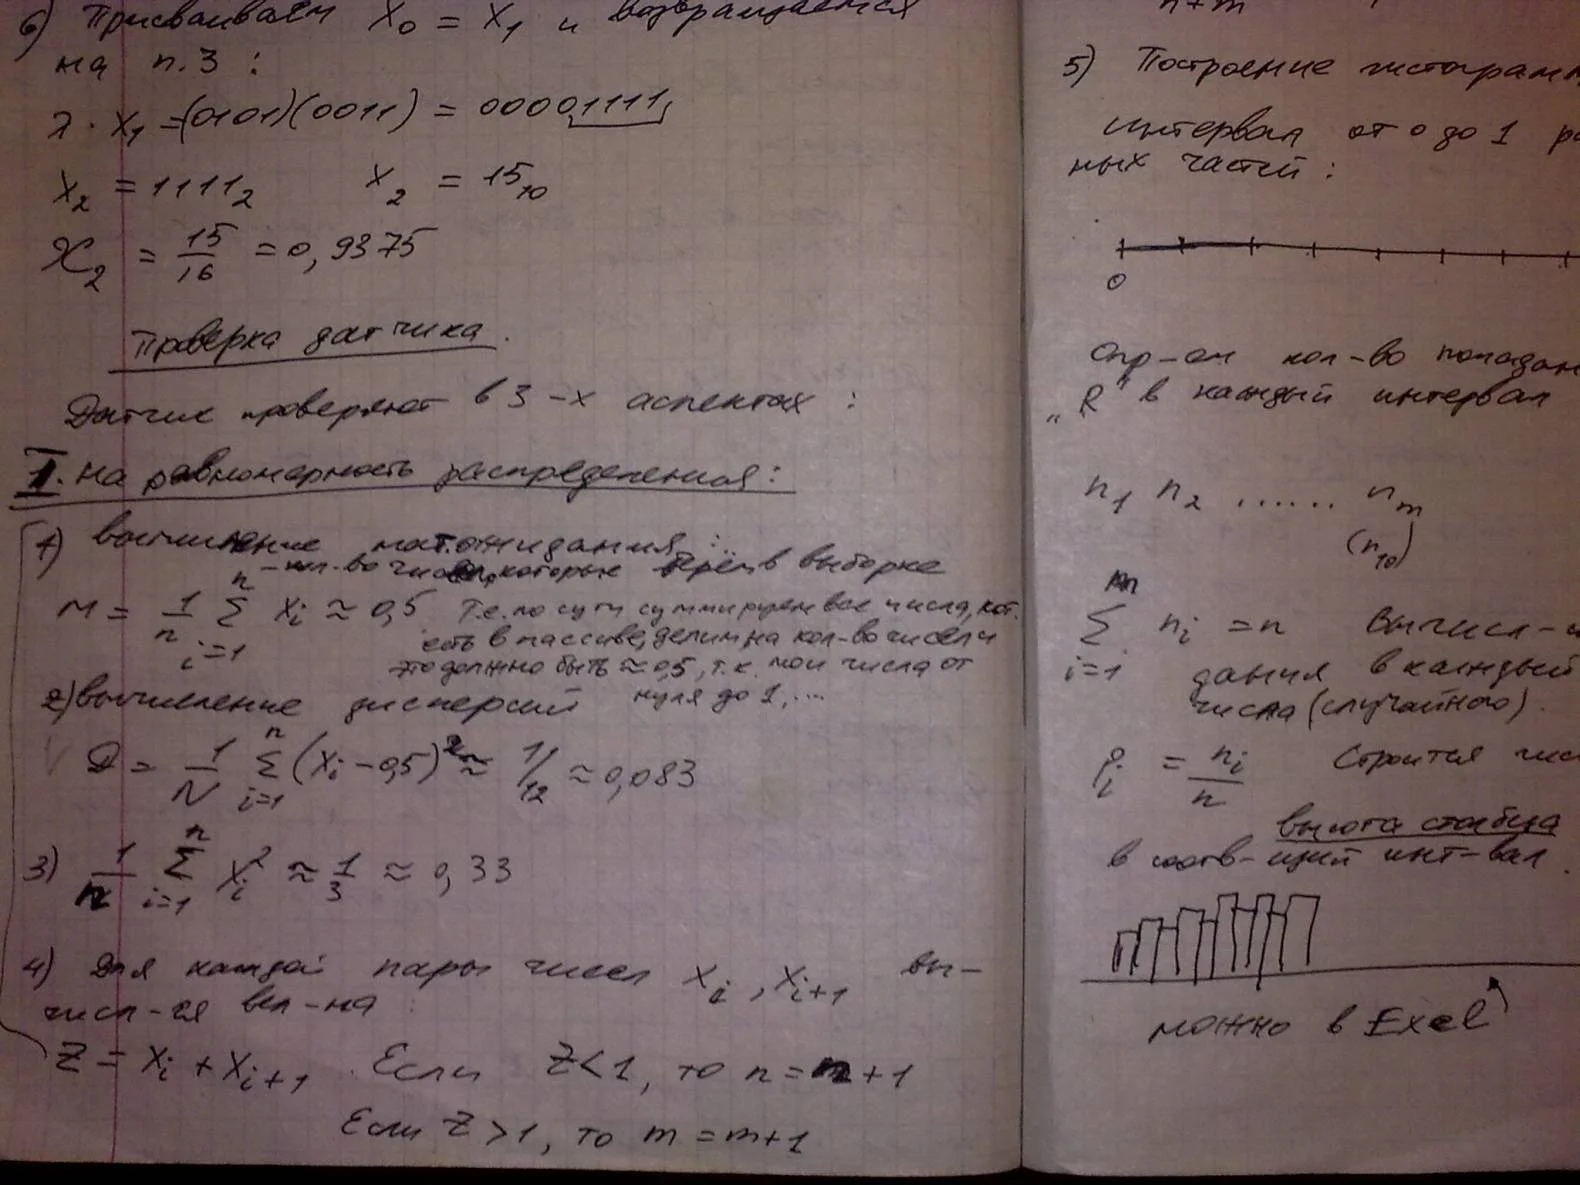 6) Присваиваем X₀ = X₁ и возвращаемся
на п.3 :
λ · X₁ = (0101)(0011) = 00001111
X₂ = 1111₂ X₂ = 15₁₀
X₂ = 15/16 = 0,9375
Проверка датчика.
Датчик проверяют в 3-х аспектах :
I. на равномерность распределения :
1) вычисление мат.ожидания :
n - кол-во чисел, которые берём в выборке
M = 1/n ∑ i=1 Xi ≈ 0,5 Т.е. по сути суммируем все числа, кот.
есть в массиве, делим на кол-во чисел и
это должно быть ≈ 0,5, т.к. мои числа от
нуля до 1, ....
2) вычисление дисперсий
D = 1/N n ∑ i=1 (Xi - 0,5)² ≈ 1/12 ≈ 0,083
3) 1/n n ∑ i=1 Xi² ≈ 1/3 ≈ 0,33
4) Для каждой пары чисел Xi , Xi+1 вы-
числ-ся вел-на :
Z = Xi + Xi+1. Если Z < 1, то n = n + 1
Если Z > 1, то m = m+1
n+m
5) Построение гистограмм
Интервал от 0 до 1
ных частей :
0
Опр-ем кол-во попадан
„R" в каждый интервал
n₁ n₂ ...... nm
(n₁₀)
m ∑ i=1 ni = n Вычисл-
дания в каждый
числа (случайного).
pi = ni/n Строится
высота столбца
в соотв-щий инт-вал.
можно в Excel